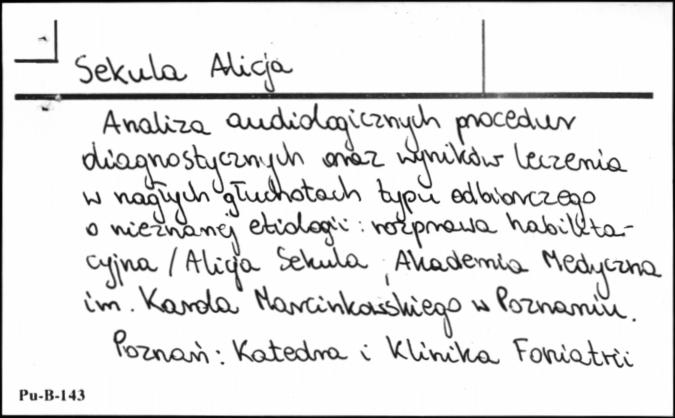 Sekula Alicja
Analiza audiologicznych procedur
diagnostycznych oraz wyników leczenia
w nagłych głuchotach typu odbiorczego
o nieznanej etiologii : rozprawa habilita-
cyjna / Alicja Sekula ; Akademia Medyczna
im. Karola Marcinkowskiego w Poznaniu.
Poznań : Katedra i Klinika Foniatrii
Pu-B-143